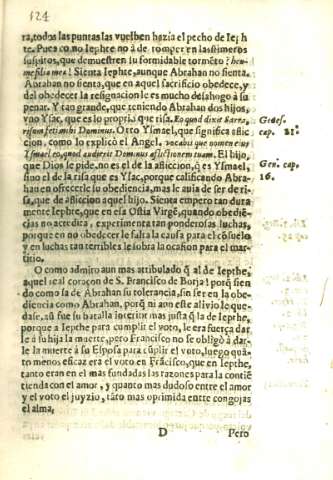 524
ra, todos las puntas las vuelben hazia el pecho de Ieph
te. Pues como Iephte no á de romper en lastimeros
suspiros, que demuestren su formidable tormēto? heu-
me filia mea! Sienta Iephte, aunque Abrahan no sienta.
Abrahan no sienta, que en aquel sacrificio obedece, y
del obedecer la resignacion le es mucho desahogo à su
penar. Y tan grande, que teniendo Abrahan dos hijos,
vno Ysac, que es lo proprio que risa. Eo quod dixit Sarra,
risum fecit mihi Dominus. Otro Ysmael, que significa aflic-
cion, como lo explicò el Angel. vocabis que nomen eius
Ysmael eo, quod audierit Dominus aflictionem tuam. El hijo,
que Dios le pide, no es el de la afliccion, q̄ es Ysmael,
sino el de la risa que es Ysac, porque calificando Abra-
han en ofrecerle su obediencia, mas le auia de ser de ri-
sa, que de afliccion aquel hijo. Sienta empero tan dura
mente Iephte, que en esa Ostia Virgē, quando obediē-
cias no acredita, experimenta tan ponderosas luchas,
porque en no obedecer le falta la causa para el cōsuelo
y en luchas tan terribles le sobra la ocasion para el mar-
tirio.
O como admiro aun mas atribulado q̄ al de Iepthe,
aquel real coraçon de S. Francisco de Borja! porq̄ sien
do como la de Abrahan su tolerancia, sin ser en la obe-
diencia como Abrahan, porq̄ ni aun este aliuio le que-
dase, tū fue su batalla interior mas justa q̄ la de Iepthe,
porque a Iepthe para cumplir el voto, le era fuerça dar
le á su hija la muerte, pero Francisco no se obligò à dar-
le la muerte à su Esposa para cūplir el voto, luego quā-
to menos eficaz era el voto en Frācisco, que en Iepthe,
tanto eran en el mas fundadas las razones para la contiē
tienda con el amor, y quanto mas dudoso entre el amor
y el voto el juyzio, tāto mas oprimida entre congojas
el alma.
D
Pero
Genes.
cap. 21.
Gen. cap.
16.